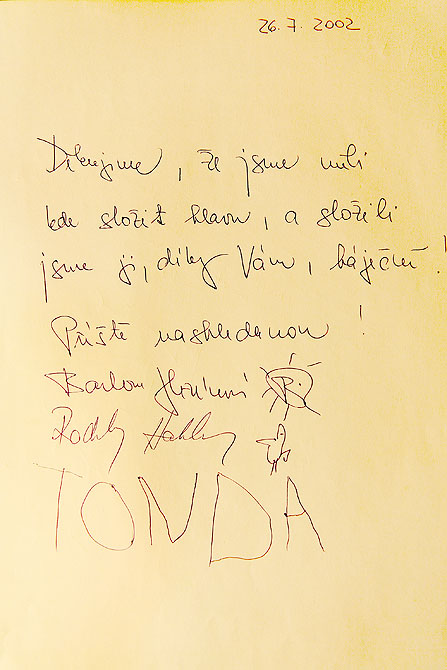 26. 7. 2002
Děkujeme, že jsme měli
kde složit hlavu, a složili
jsme ji, díky Vám, báječně!
Příště nashledanou!
TONDA